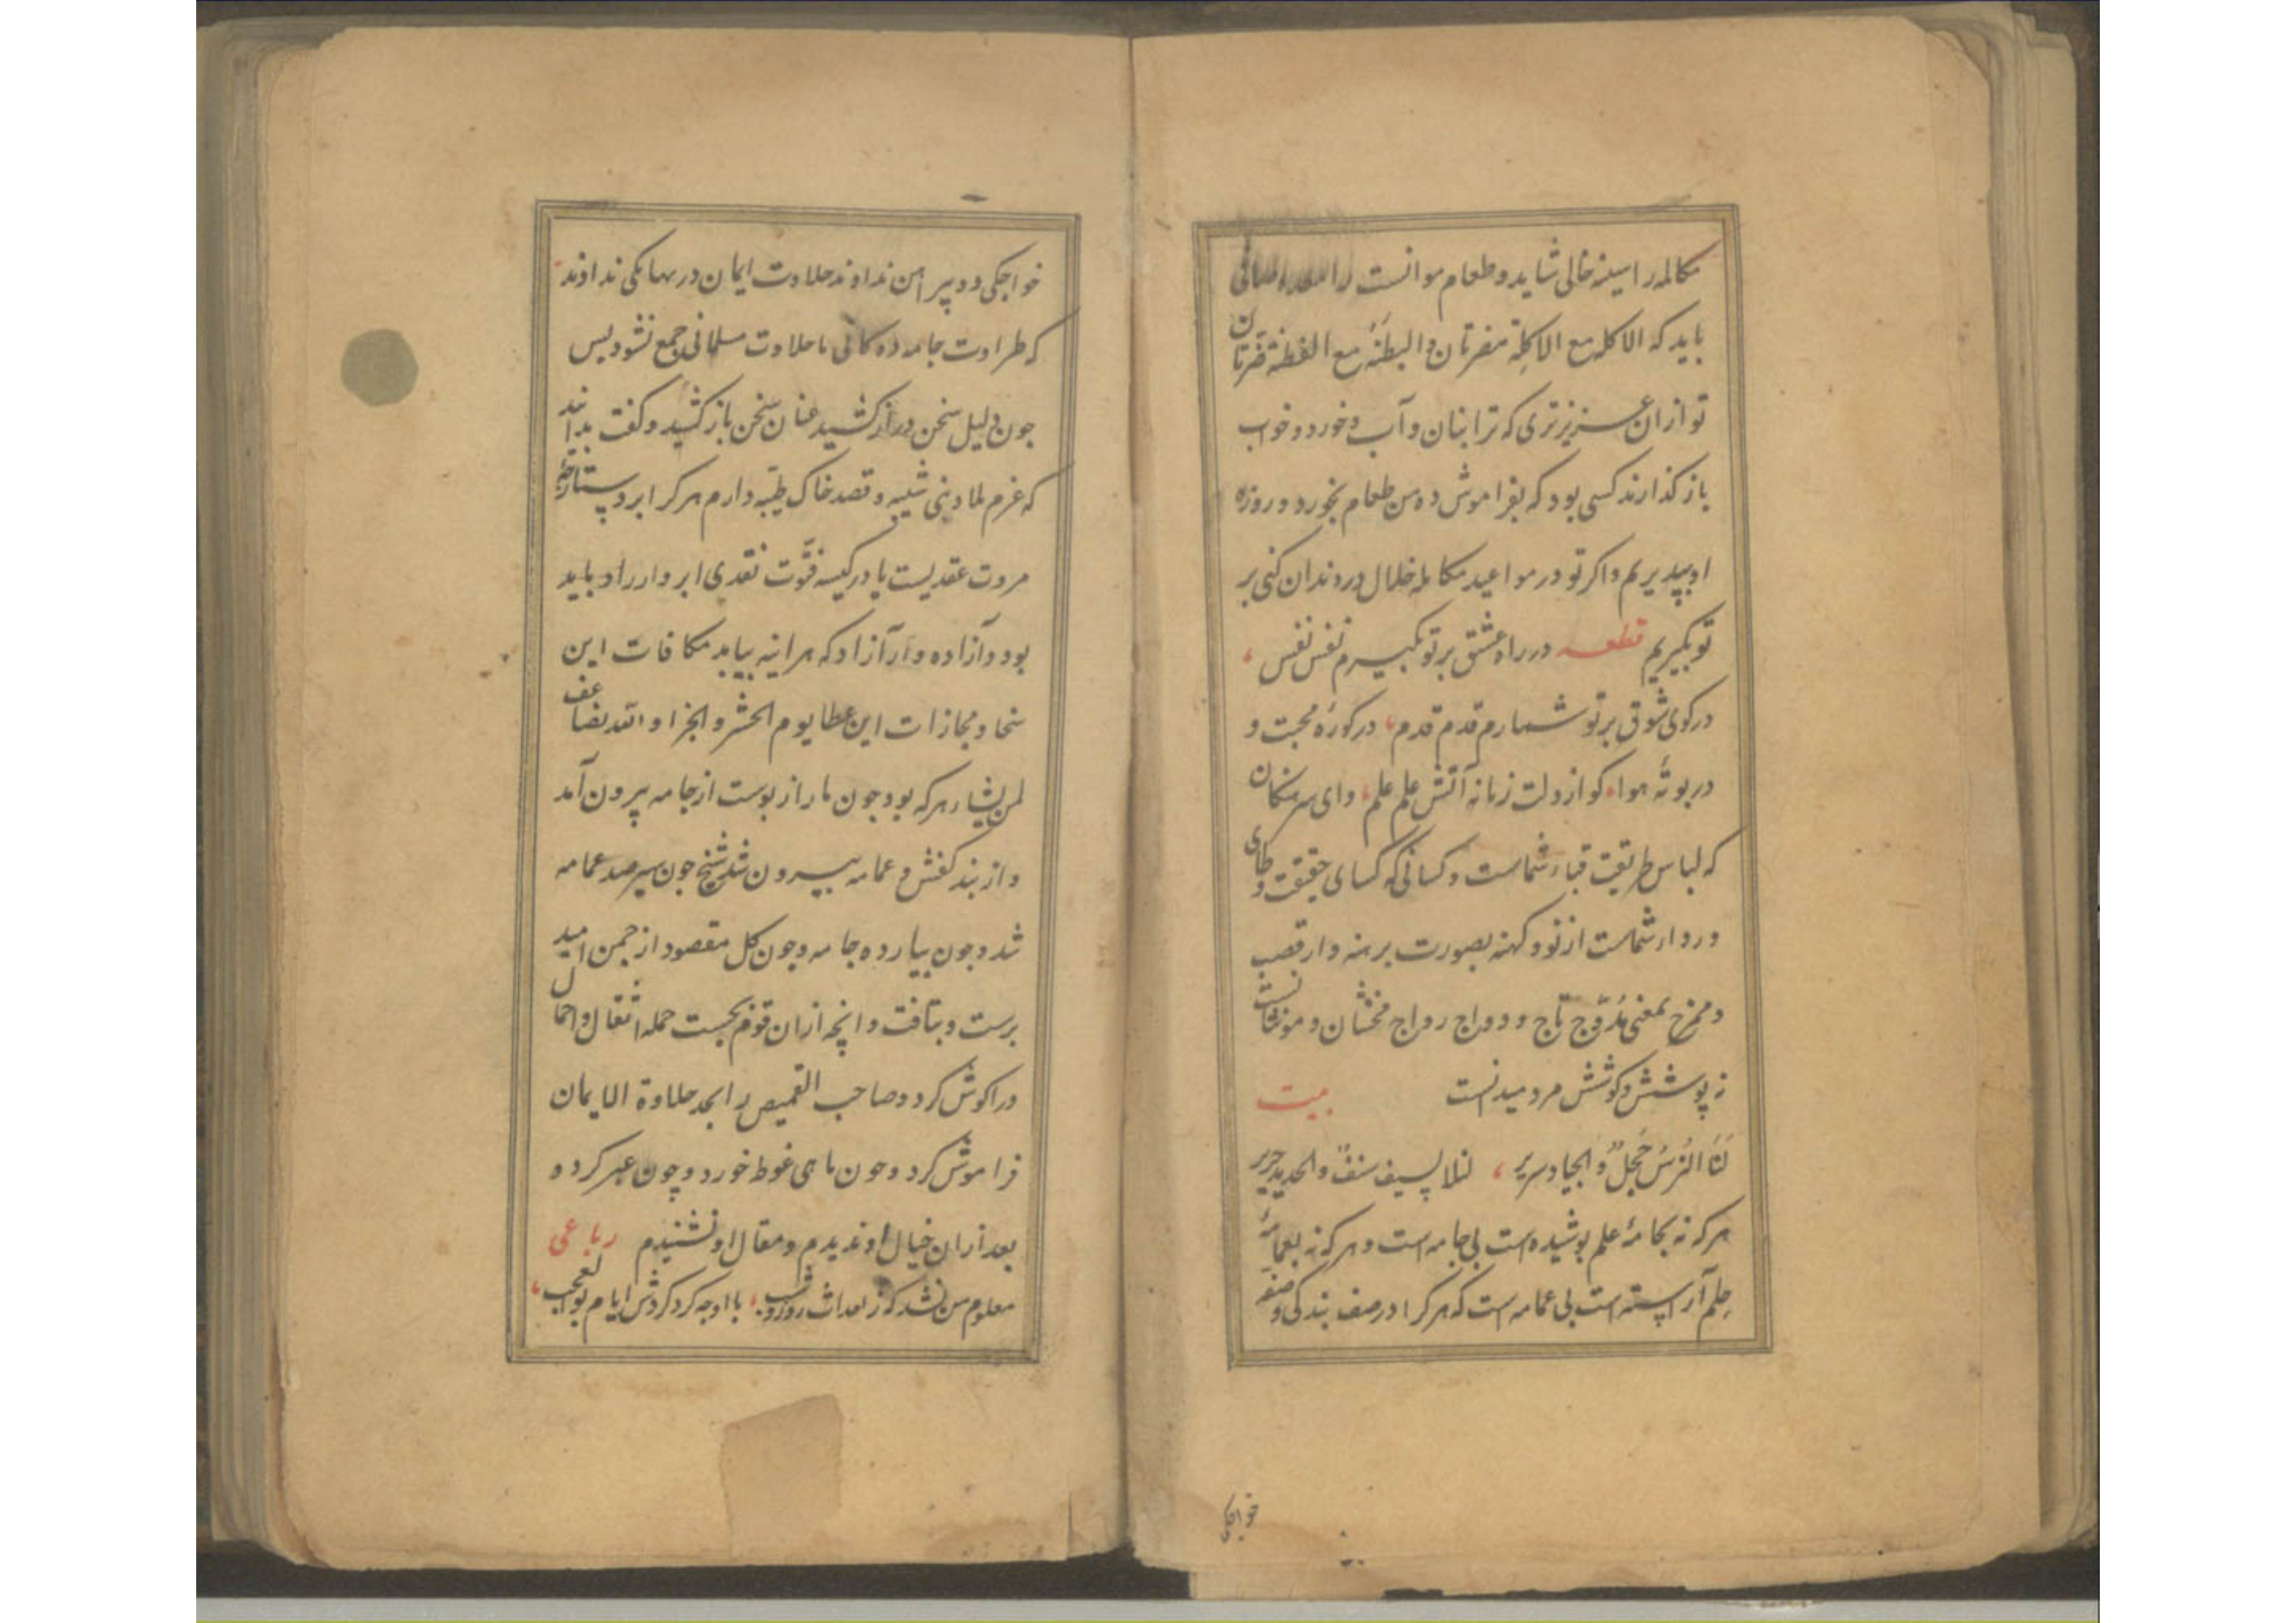 مکالمه را سینه خالی شاید و طعام موانست را
باید که الاکله مع الاکلة مضرتان والبطنة مع الفطنة ضرتان
تو از ان عزیزتری که ترا بنان و آب و خورد و خواب
باز کذارند کسی بود که بفراموش ده من طعام بخورد و روزه
او بپذیریم و اکر تو در مواعید مکالمه خلال در دندان کنی بر
تو بکیریم قطعه در راه عشق بر تو بکیرم نفس نفس
در کوی شوق بر تو شمارم قدم قدم در کورهٔ محبت و
در بوتهٔ هوا کو از دلت زبانه آتش علم علم وای سرهنکان
که لباس طریقت قباء شماست و کسانی که کسای حقیقت وطای
و رداء شماست از نو و کهنه بصورت برهنه و از قصب
و ممزج بمعنی مدوج تاج و دواج رواج مخنثان و مونثانست
نه پوشش و کوشش مرد میدانست
بیت
لنا الترس حجل والجیاد سریر لنا السیف سنف والحدید حریر
هر که نه بجامهٔ علم پوشیده است بی جامه است و هر که نه بعمامهٔ
حلم آراسته است بی عمامه است که هر کرا در صف بندکی و صفه
خواجکی
خواجکی دو پیراهن نداوند حلاوت ایمان در بهانکی نداوند
که طراوت جامه دوکانی با حلاوت مسلمانی جمع نشود پس
جون دلیل سخن دراز کشید عنان سخن باز کشید و کفت بدانید
که عزم لما دینی شیبه و قصد خاک طیبه دارم هر کرا بر دستارچهٔ
مروت عقدیست یا در کیسه فتوت نقدی ابر وار راد باید
بود و آزاده وار آزاد که هر اینه بیابد مکافات این
سخا و مجازات این عطا یوم الحشر والجزا والله یضاعف
لمن یشاء هر که بود جون مار از پوست از جامه بیرون آمد
و از بند کفش و عمامه بیرون شد شیخ جون سیر صد عمامه
شد و جون پیاز ده جامه و جون کل مقصود از جمن امید
برست و بتافت و انچه ازان قوم بجست جمله اثقال و احمال
در اکوش کرد و صاحب القمیص لا یجد حلاوة الایمان
فراموش کرد و جون ماهی غوط خورد و چون عبر کرد و
بعد ازان خیال او ندیدم و مقال او نشنیدم رباعی
معلوم من نشد که ز احداث روز و شب با او چه کرد کردش ایام بوالعجب